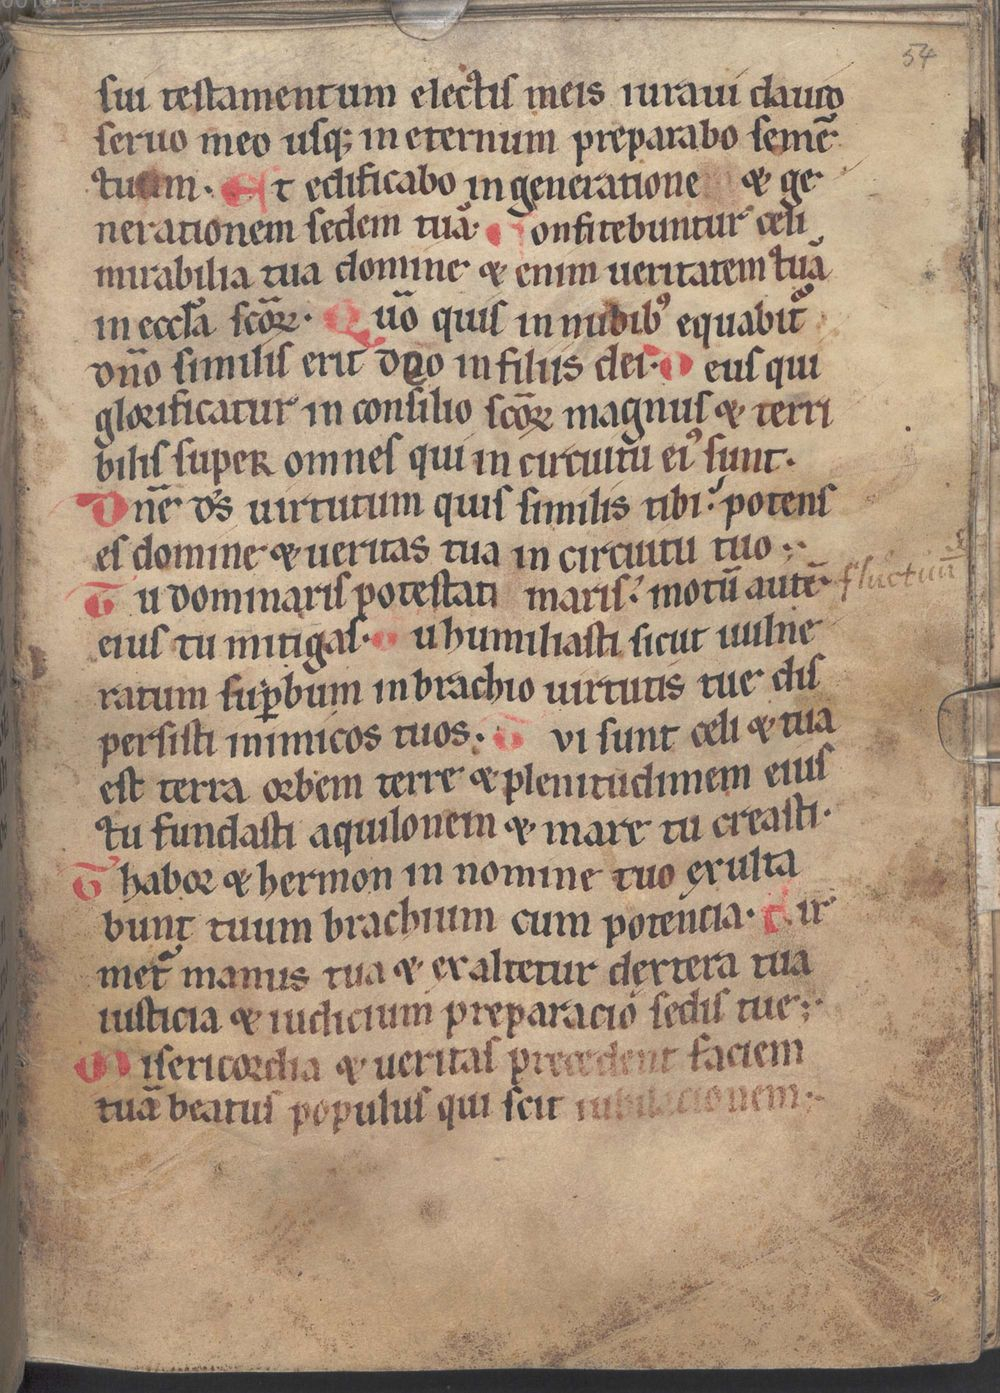 54
sui testamentum electis meis iuraui dauid
seruo meo usq; in eternum preparabo semē
tuum. Et edificabo in generatione & ge
nerationem sedem tuā. Confitebuntur celi
mirabilia tua domine & enim ueritatem tuā
in eccl̄a scōꝝ. Quō quis in nubibꝰ equabit̄
dn̄o similis erit dn̄o in filiis dei. Deus qui
glorificatur in consilio scōꝝ magnus & terri
bilis super omnes qui in circuitu eiꝰ sunt.
Dn̄e ds̄ uirtutum quis similis tibi? potens
es domine & ueritas tua in circuitu tuo.
Tu dominaris potestati maris? motū autē fluctuū
eius tu mitigas. Tu humiliasti sicut uulne
ratum suꝑbum in brachio uirtutis tue dis
persisti inimicos tuos. Tui sunt celi & tua
est terra orbem terre & plenitudinem eius
tu fundasti aquilonem & mare tu creasti.
Thabor & hermon in nomine tuo exulta
bunt tuum brachium cum potencia. Fir
met̄ manus tua & exaltetur dextera tua
iusticia & iudicium preparacio sedis tue.
Misericordia & ueritas precedent faciem
tuā beatus populus qui scit iubilacionem.